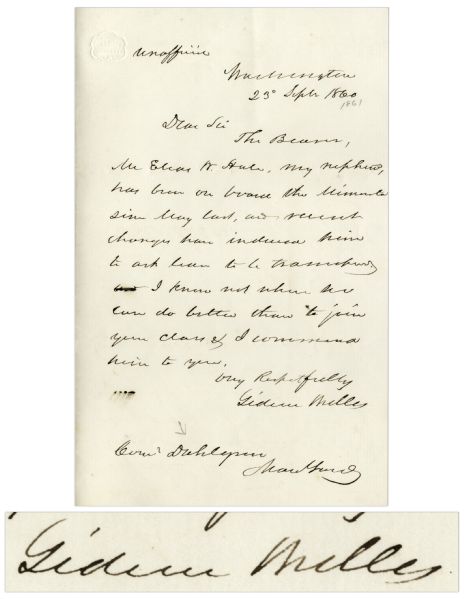 Unofficial
Washington
23d Sept 1860
1861
Dear Sir
The Bearer,
Mr Elias W. Hale, my nephew,
has been on board the Minnesota
since May last, and recent
changes have induced him
to ask leave to be transferred
I know not where he
can do better than to join
your class & I commend
him to you.
Very Respectfully
Gideon Welles
Comr Dahlgren
Navy Yard
Gideon Welles